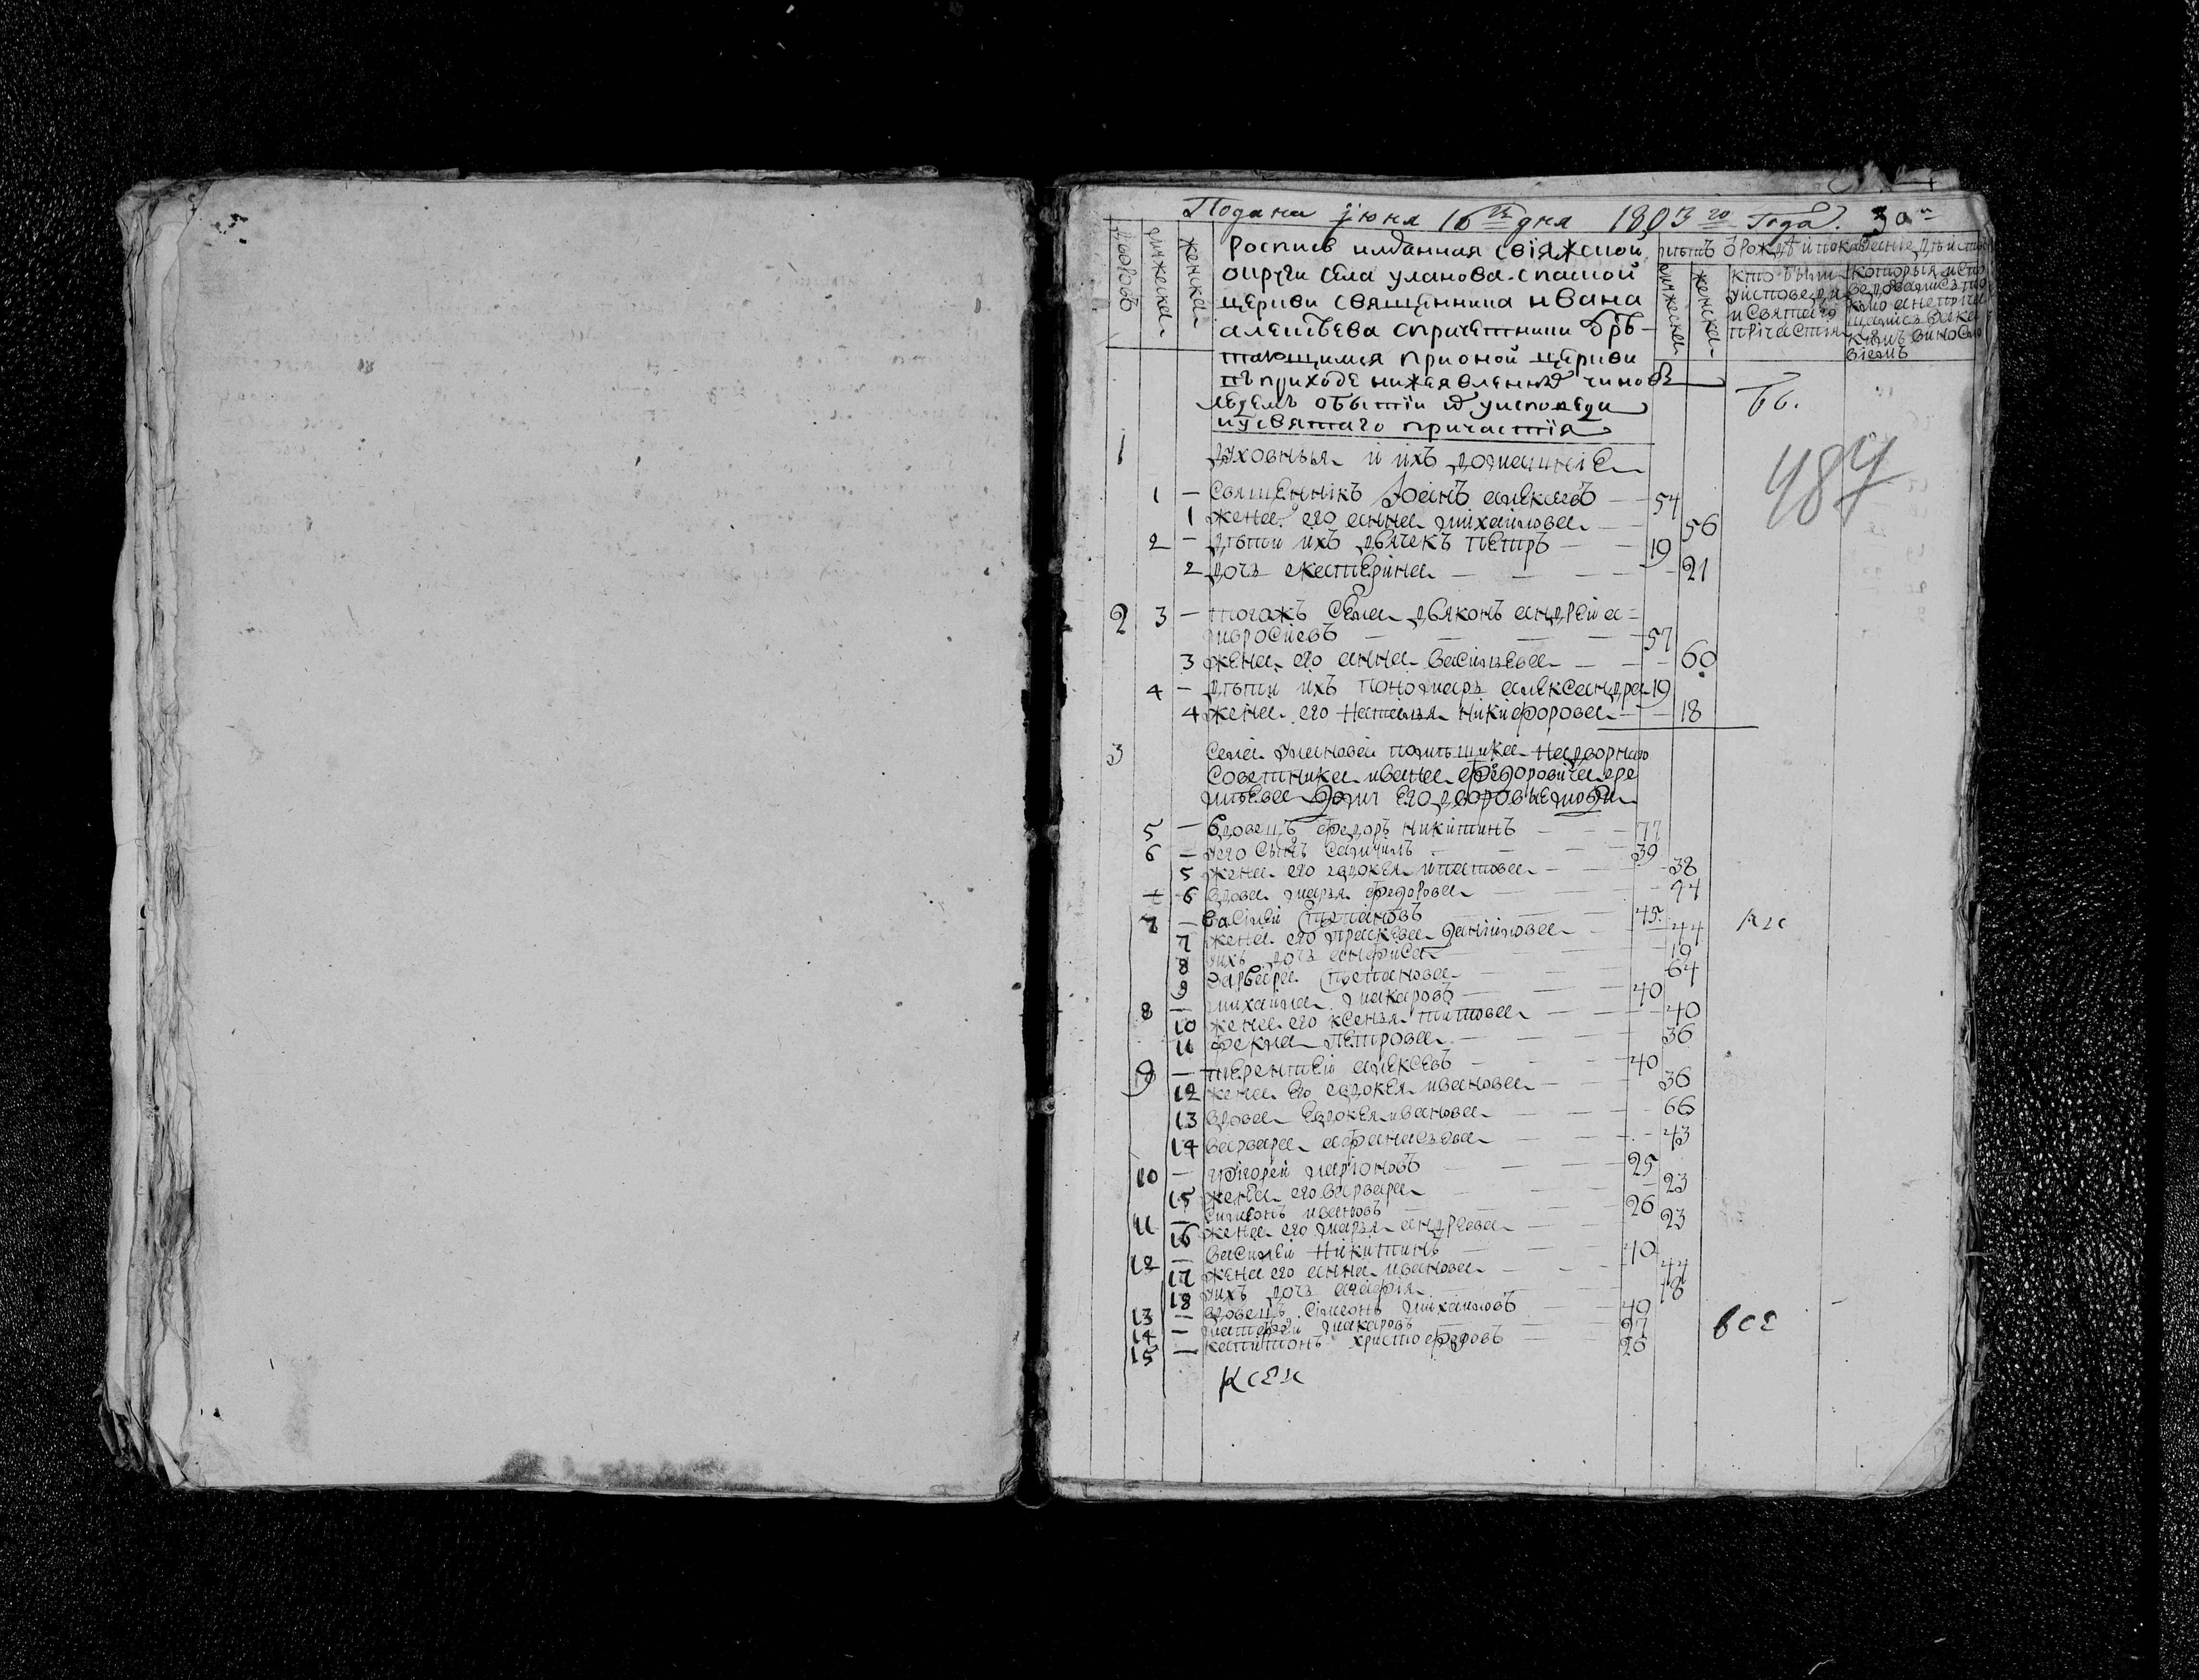 Подана июня 16го дня 1803го года. 30
дворовъ
мужеска
женска
Роспись изданная свіяжской
округи села уланова спаской
церкви священника ивана
алексѣева с причетники обрѣ-
тающимся при оной церкви
въ приходе нижеявленных чиновъ
людемъ о бытіи их у исповеди
и у святаго причастія
лѣтъ ѿ рождѣ
мужеска
женска
кто были
у исповеди
и святаго
причастія
1 духовныя и ихъ домашніе
1 — священнікъ Іоанъ алексеевъ — 54
1 жена его анна михаилова — 56
2 — дѣти ихъ дьячекъ петръ — 19
2 дочь екатерина — 21
2 3 — тогожъ села дьяконъ андрей а-
мвросиевъ — 57
3 жена его анна васильева — 60
4 — дѣти ихъ пономарь александра 19
4 жена его наталья никифорова — 18
3 села уланова помѣщика надворнаго
советника ивана федоровича
его дворовые люди
5 — вдовецъ федоръ никитинъ — 77
6 — его сынъ самуилъ — 39
5 жена его евдокея ипатова — 38
6 вдова марья федорова —
7 — василей степановъ — 45
7 жена его праскева даниилова — 44
8 ихъ дочь анфиса — 19
9 варвара степанова — 64
8 — михаила макаровъ — 40
10 жена его ксенья титова — 40
11 фекла петрова — 36
9 — терентей алексеевъ — 40
12 жена его евдокея иванова — 36
13 вдова евдокея иванова — 66
14 варвара афанасьева — 43
10 — григорей ларіоновъ — 25
15 жена его варвара — 23
11 — симеонъ ивановъ — 26
16 жена его марья андреева — 23
12 — василей никитинъ — 40
17 жена его анна иванова — 44
18 ихъ дочь агафія — 18
13 — вдовецъ сімеонъ михаиловъ — 49
14 — матфей макаровъ — 27
15 — капитонъ христофоровъ — 26
487
все